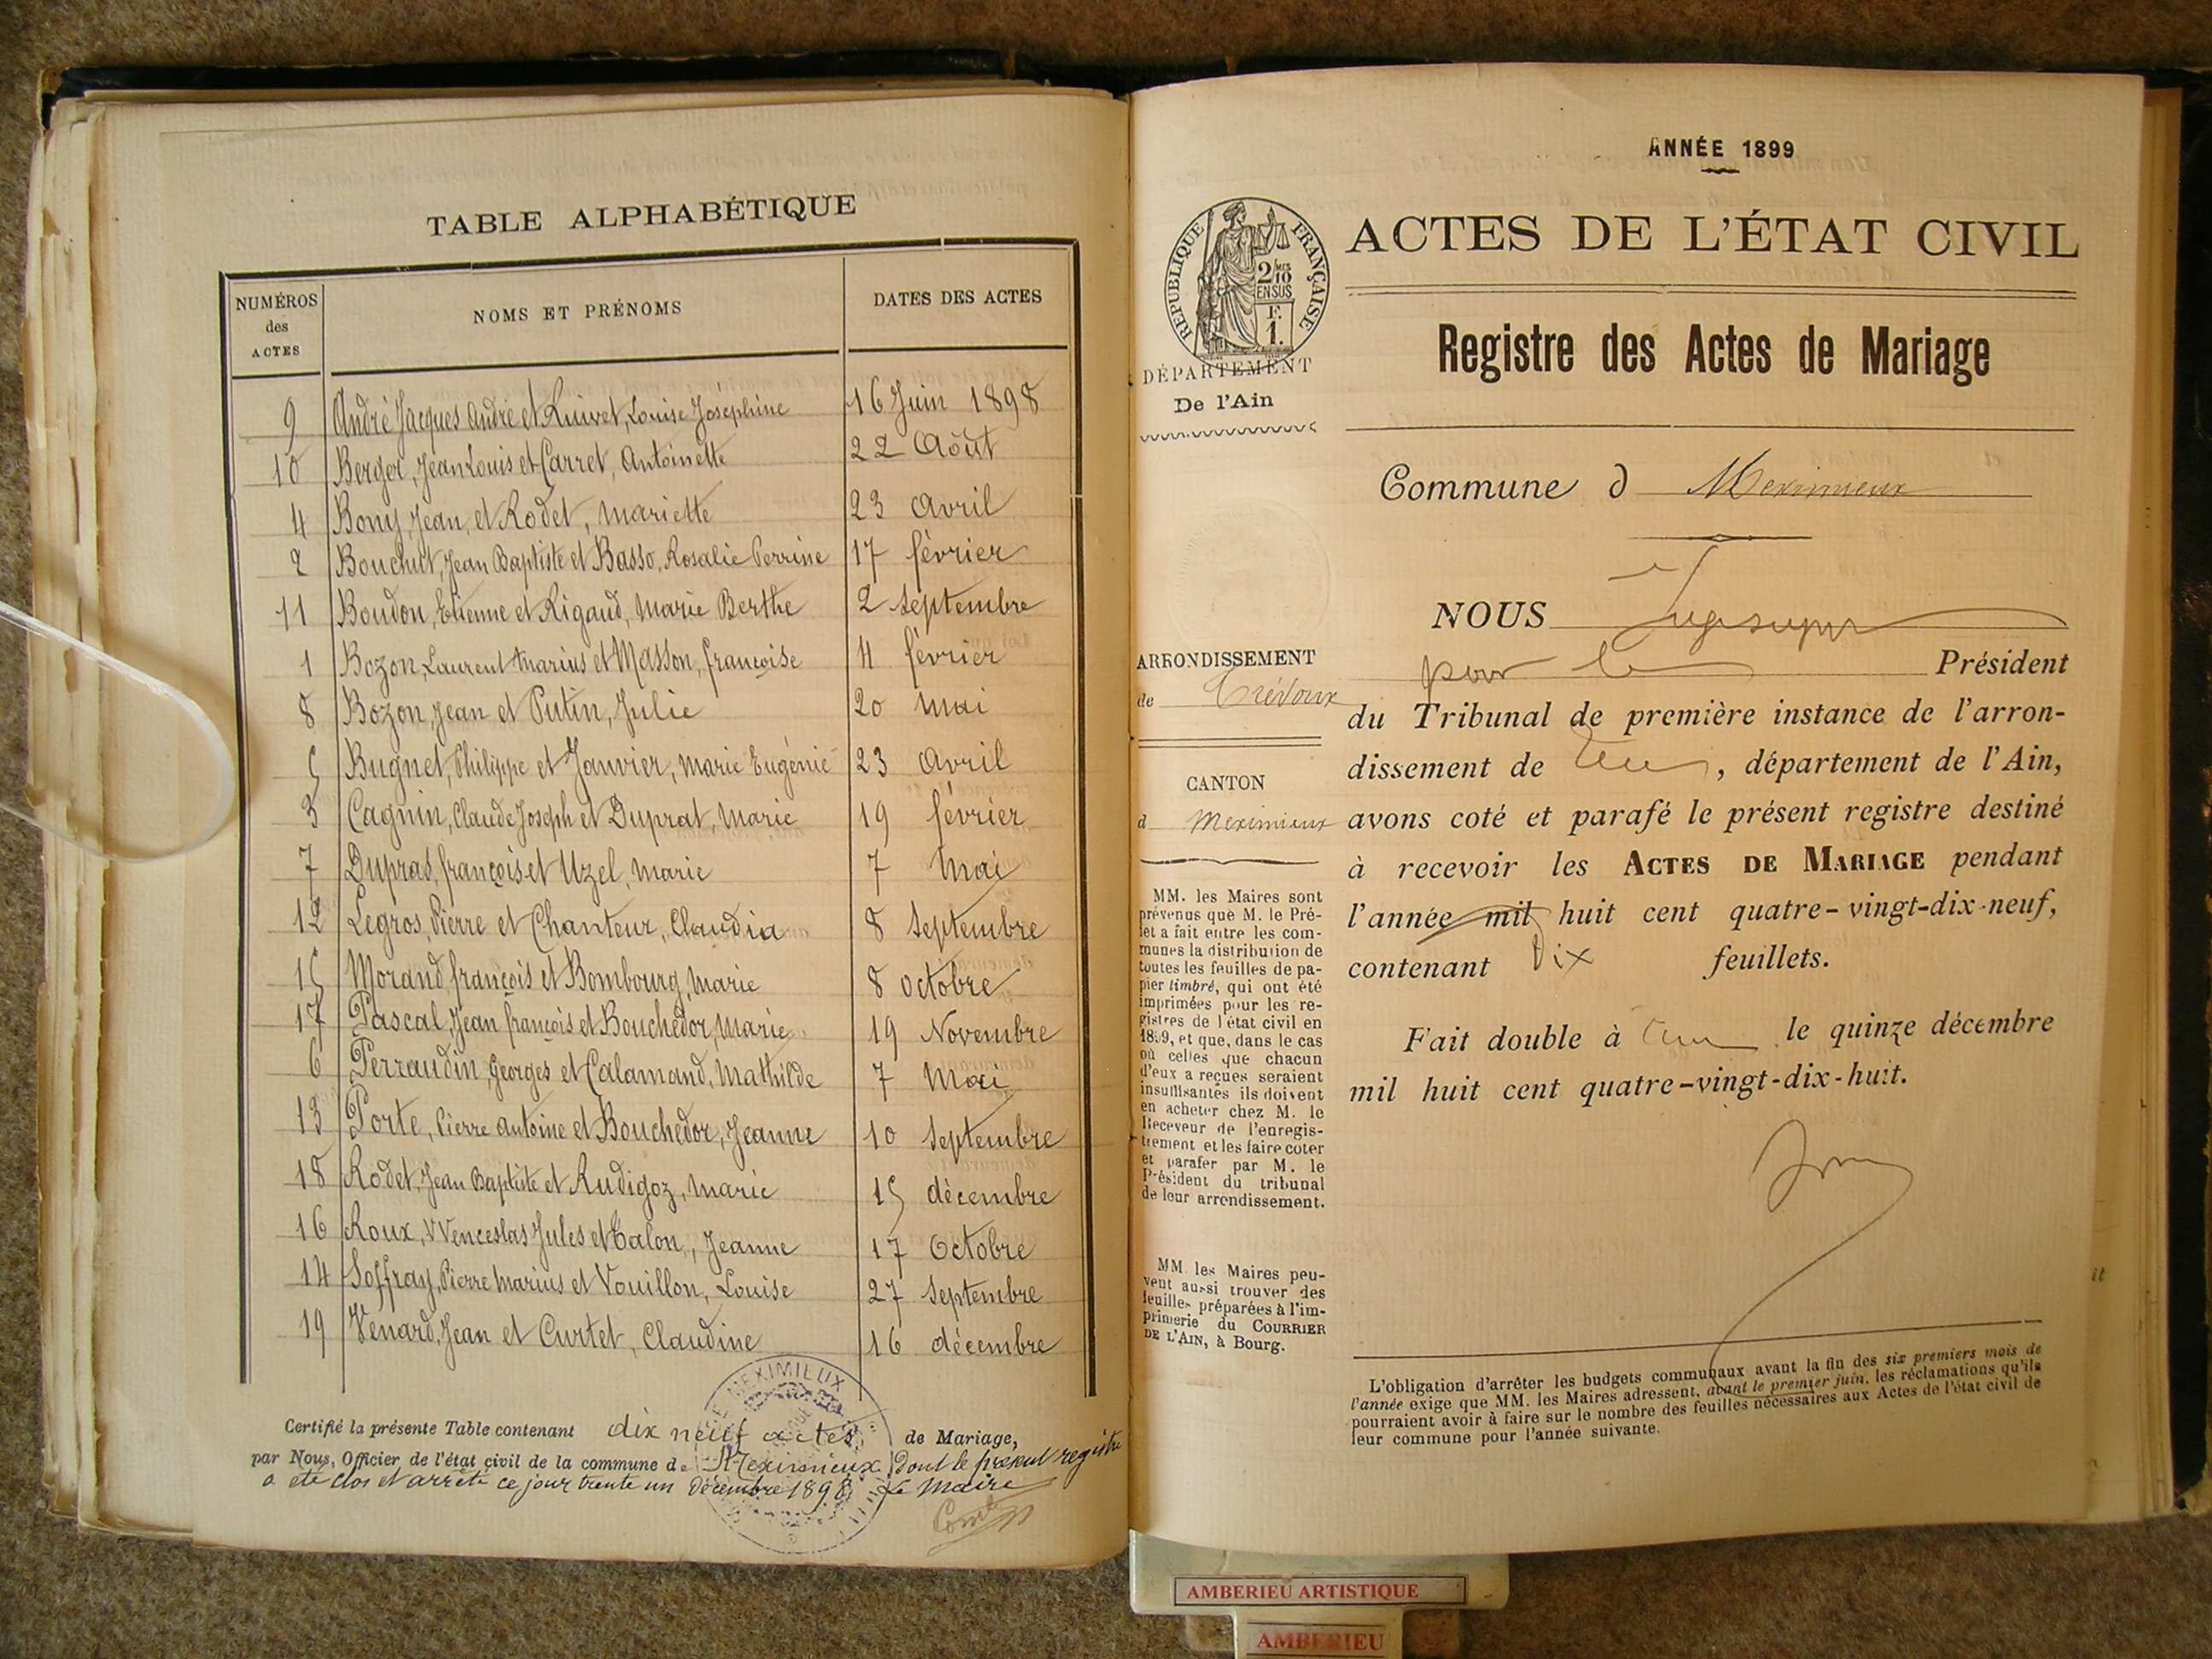 TABLE ALPHABÉTIQUE
NUMÉROS des ACTES NOMS ET PRÉNOMS DATES DES ACTES
9 André Jacques André et Ruivet, Louise Joséphine 16 Juin 1898
10 Berger, Jean Louis et Carret, Antoinette 22 Août
4 Bony, Jean, et Rodet, Mariette 23 Avril
2 Bouchut, Jean Baptiste et Basso, Rosalie Perrine 17 février
11 Boudon, Etienne et Rigaud, Marie Berthe 2 Septembre
1 Bozon, Laurent Marius et Masson, françoise 4 février
8 Bozon, Jean et Putin, Julie 20 Mai
5 Bugnet, Philippe et Janvier, Marie Eugénie 23 Avril
3 Cagnin, Claude Joseph et Duprat, Marie 19 février
7 Dupras, françois et Uzel, Marie 7 Mai
12 Legros, Pierre et Chanteur, Claudia 8 Septembre
15 Morand, françois et Bombourg, Marie 8 Octobre
17 Pascal, Jean françois et Bouchedor, Marie 19 Novembre
6 Perraudin, Georges et Calamand, Mathilde 7 Mai
13 Porte, Pierre Antoine et Bouchedor, Jeanne 10 Septembre
18 Rodet, Jean Baptiste et Rudigoz, Marie 15 décembre
16 Roux, Venceslas Jules et Talon, Jeanne 17 Octobre
14 Soffray, Pierre Marius et Vouillon, Louise 27 Septembre
19 Venard, Jean et Curtet, Claudine 16 décembre
MEXIMIEUX
Certifié la présente Table contenant dix neuf actes de Mariage,
par Nous, Officier de l'état civil de la commune de Meximieux dont le présent registre
a été clos et arrêté ce jour trente un Décembre 1898 Le Maire
ANNÉE 1899
RÉPUBLIQUE FRANÇAISE
2/10 MES
EN SUS
F.
1.
DÉPARTEMENT
De l'Ain
ACTES DE L'ÉTAT CIVIL
Registre des Actes de Mariage
Commune d Meximieux
ARRONDISSEMENT
de Trévoux
CANTON
d Meximieux
MM. les Maires sont
prévenus que M. le Pré-
fet a fait entre les com-
munes la distribution de
toutes les feuilles de pa-
pier timbré, qui ont été
imprimées pour les re-
gistres de l'état civil en
1899, et que, dans le cas
où celles que chacun
d'eux a reçues seraient
insuffisantes ils doivent
en acheter chez M. le
Receveur de l'enregis-
trement et les faire coter
et parafer par M. le
Président du tribunal
de leur arrondissement.
MM. les Maires peu-
vent aussi trouver des
feuilles préparées à l'im-
primerie du COURRIER
DE L'AIN, à Bourg.
NOUS
pour le Président
du Tribunal de première instance de l'arron-
dissement de , département de l'Ain,
avons coté et parafé le présent registre destiné
à recevoir les ACTES DE MARIAGE pendant
l'année mil huit cent quatre-vingt-dix-neuf,
contenant Dix feuillets.
Fait double à le quinze décembre
mil huit cent quatre-vingt-dix-huit.
L'obligation d'arrêter les budgets communaux avant la fin des six premiers mois de
l'année exige que MM. les Maires adressent, avant le premier juin, les réclamations qu'ils
pourraient avoir à faire sur le nombre des feuilles nécessaires aux Actes de l'état civil de
leur commune pour l'année suivante.
AMBERIEU ARTISTIQUE
AMBERIEU